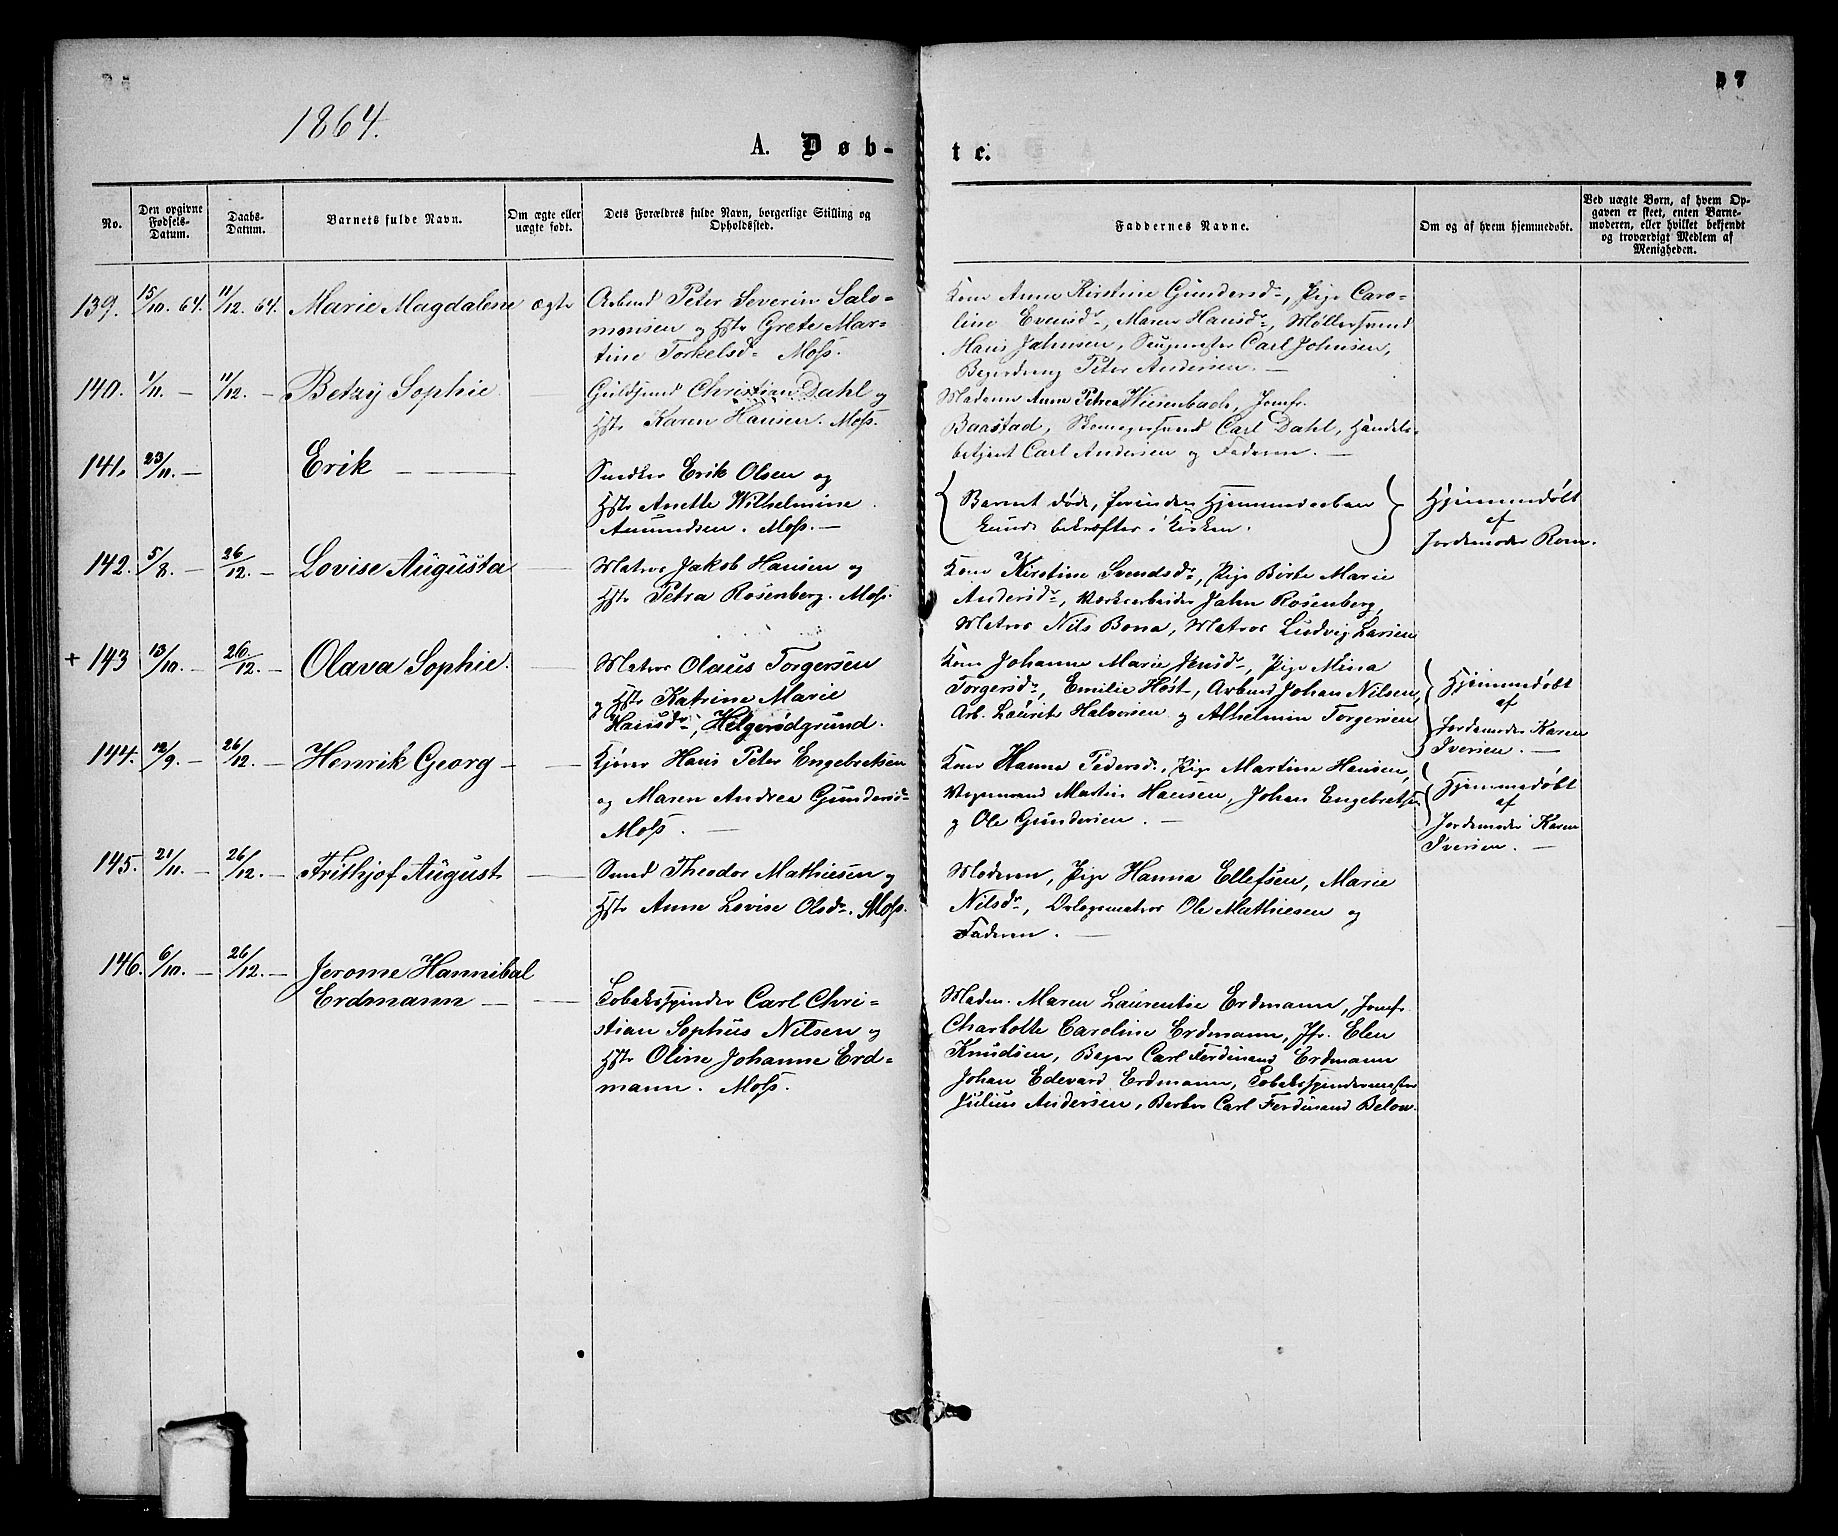 57
1864.
A. Døb-
te.
No.
Den opgivne Fødsels-Datum.
Daabs-Datum.
Barnets fulde Navn.
Om ægte eller uægte født.
Dets Forældres fulde Navn, borgerlige Stilling og Opholdssted.
Faddernes Navne.
Om og af hvem hjemmedøbt.
Ved uægte Børn, af hvem Op-
gaven er skeet, enten Barne-
moderen, eller hvilket bekjendt
og troværdigt Medlem af
Menigheden.
139. 15/10. 64. 11/12. 64. Marie Magdalene ægte
Arbmd Peter Severin Salo-
monsen og Hstr Grete Mar-
tine Torkelsd. Moss.
Kone Anne Kirstine Gundersdr, Pige Caro-
line Evensdr, Maren Hansdr, Møllersvend
Hans Jahnsen, Carl Johnsen,
Peter Andersen.
140. 1/11. — 11/12. — Betzy Sophie. —
Guldsmd Christian Dahl og
Hstr Karen Hansen. Moss.
Madame Anne Petrea Wiesenbach, Jomfr.
Baastad, Carl Dahl, Handels-
betjent Carl Andersen og Faderen. —
141. 23/11. — Erik — —
Snedker Erik Olsen og
Hstr Anette Wilhelmine
Amundsen. Moss. —
Barnet døde, førinden Hjemmedaaben
kunde bekræftes i Kirken.
Hjemmedøbt
af
Jordemoder Rom.
142. 5/8. — 26/12. — Lovise Augusta —
Matros Jakob Hansen og
Hstr Petra Rosenberg. Moss.
Kone Kirstine Svendsdr, Pige Birte Marie
Andersdr, Værksarbeider Jahn Rosenberg,
Matros Nils Bona, Matros Ludvig Larsen
+ 143 13/10. — 26/12. — Olava Sophie. —
Matros Olaus Torgersen
og Hstr Katrine Marie
Hansdr, Helgerødgrund.
Kone Johanne Marie Jensdr, Pige Mina
Torgersdr, Emilie Høst, Arbmd Johan Nilsen,
Arb. Laurits Halvorsen og Alhelmin Torgersen
Hjemmedøbt
af
Jordemoder Karen
Iversen. —
144. 12/9. — 26/12. — Henrik Georg — —
Kjører Hans Peter Engebretsen
og Maren Andrea Gundersdr
Moss. —
Kone Hanna Pedersdr, Pige Martine Hansen,
Vognmand Martin Hansen, Johan Engebretsen
og Ole Gundersen. —
Hjemmedøbt
af
Jordemoder Karen
Iversen. —
145. 21/11. — 26/12. — Frithjof August —
Smed Theodor Mathiesen og
Hstr Anne Lovise Olsdr. Moss.
Moderen, Pige Hanna Ellefsen, Marie
Nilsdr, Orlogsmatros Ole Mathiesen og
Faderen. —
146. 6/10. — 26/12. — Jerome Hannibal
Erdmann — —
Tobaksspinder Carl Chri-
stian Sophus Nilsen og
Hstr Oline Johanne Erd-
mann. Moss.
Madm. Maren Laurentse Erdmann, Jomfr.
Charlotte Caroline Erdmann, Jfr. Elen
Knudsen, Bager Carl Ferdinand Erdmann
Johan Edevard Erdmann, Tobaksspindermester
Julius Andersen, Barber Carl Ferdinand Below.